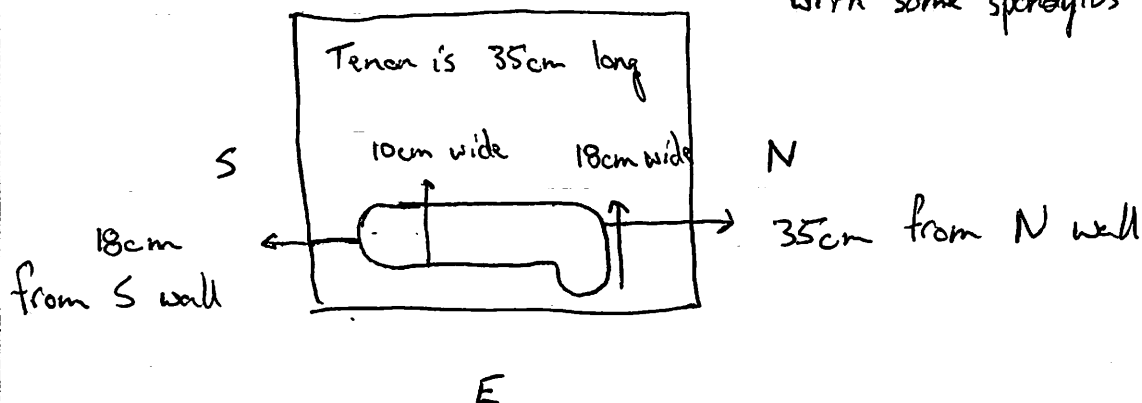 with some
Tenon is 35cm long
S
10cm wide
18cm wide
N
18cm
from S wall
35cm from N wall
E